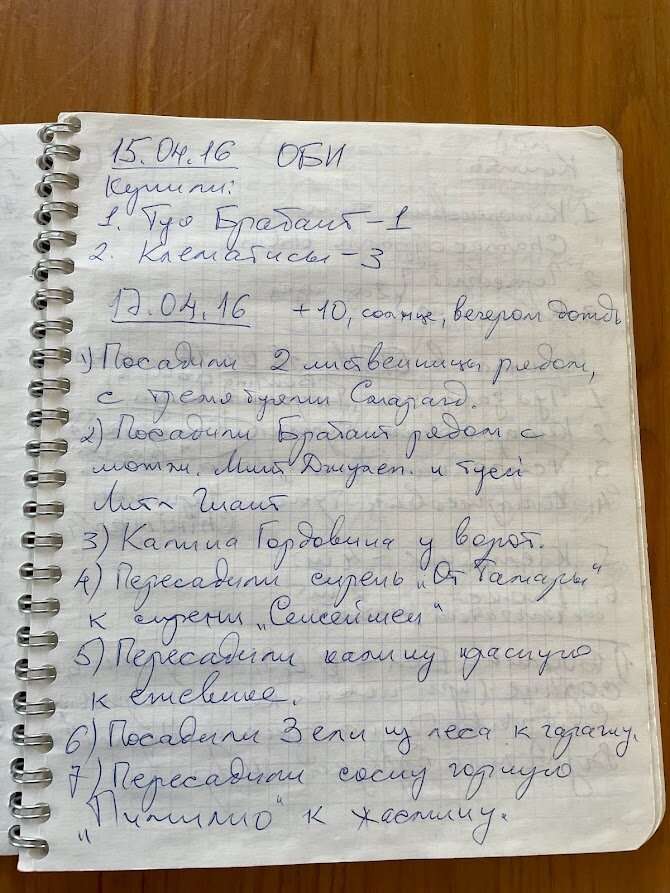 15.04.16 ОБИ
Купили:
1. Туя Брабант - 1
2. Клематисы - 3
17.04.16 +10, солнце, вечером дождь
1) Посадили 2 лиственницы рядом,
с тремя туями Смарагд.
2) Посадили Брабант рядом с
можж. Минт Джулеп. и туей
Литл Гиант
3) Калина Гордовина у ворот.
4) Пересадили сирень „От Тамары"
к сирени „Сенсейшен"
5) Пересадили калину красную
к ежевике.
6) Посадили 3 ели из леса к гаражу.
7) Пересадили сосну горную
„Пумилио" к жасмину.